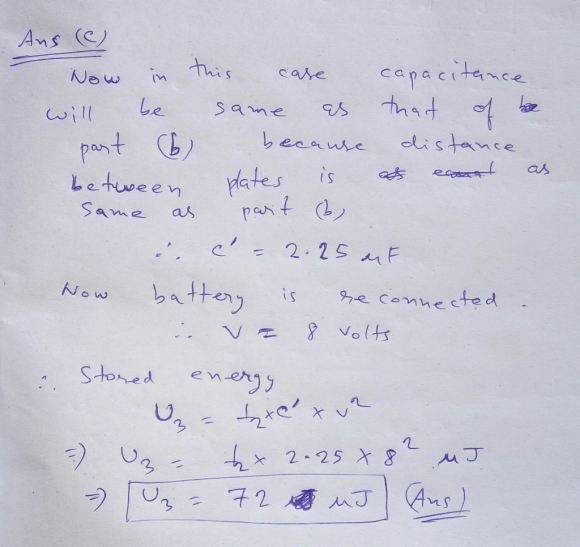 Ans (C)
Now in this case capacitance
will be same as that of
part (b) because distance
between plates is as
same as part (b)
∴ C' = 2.25 μF
Now battery is reconnected.
∴ V = 8 volts
∴ Stored energy
U₃ = ½ × C' × V²
⇒ U₃ = ½ × 2.25 × 8² μJ
⇒ U₃ = 72 μJ (Ans)